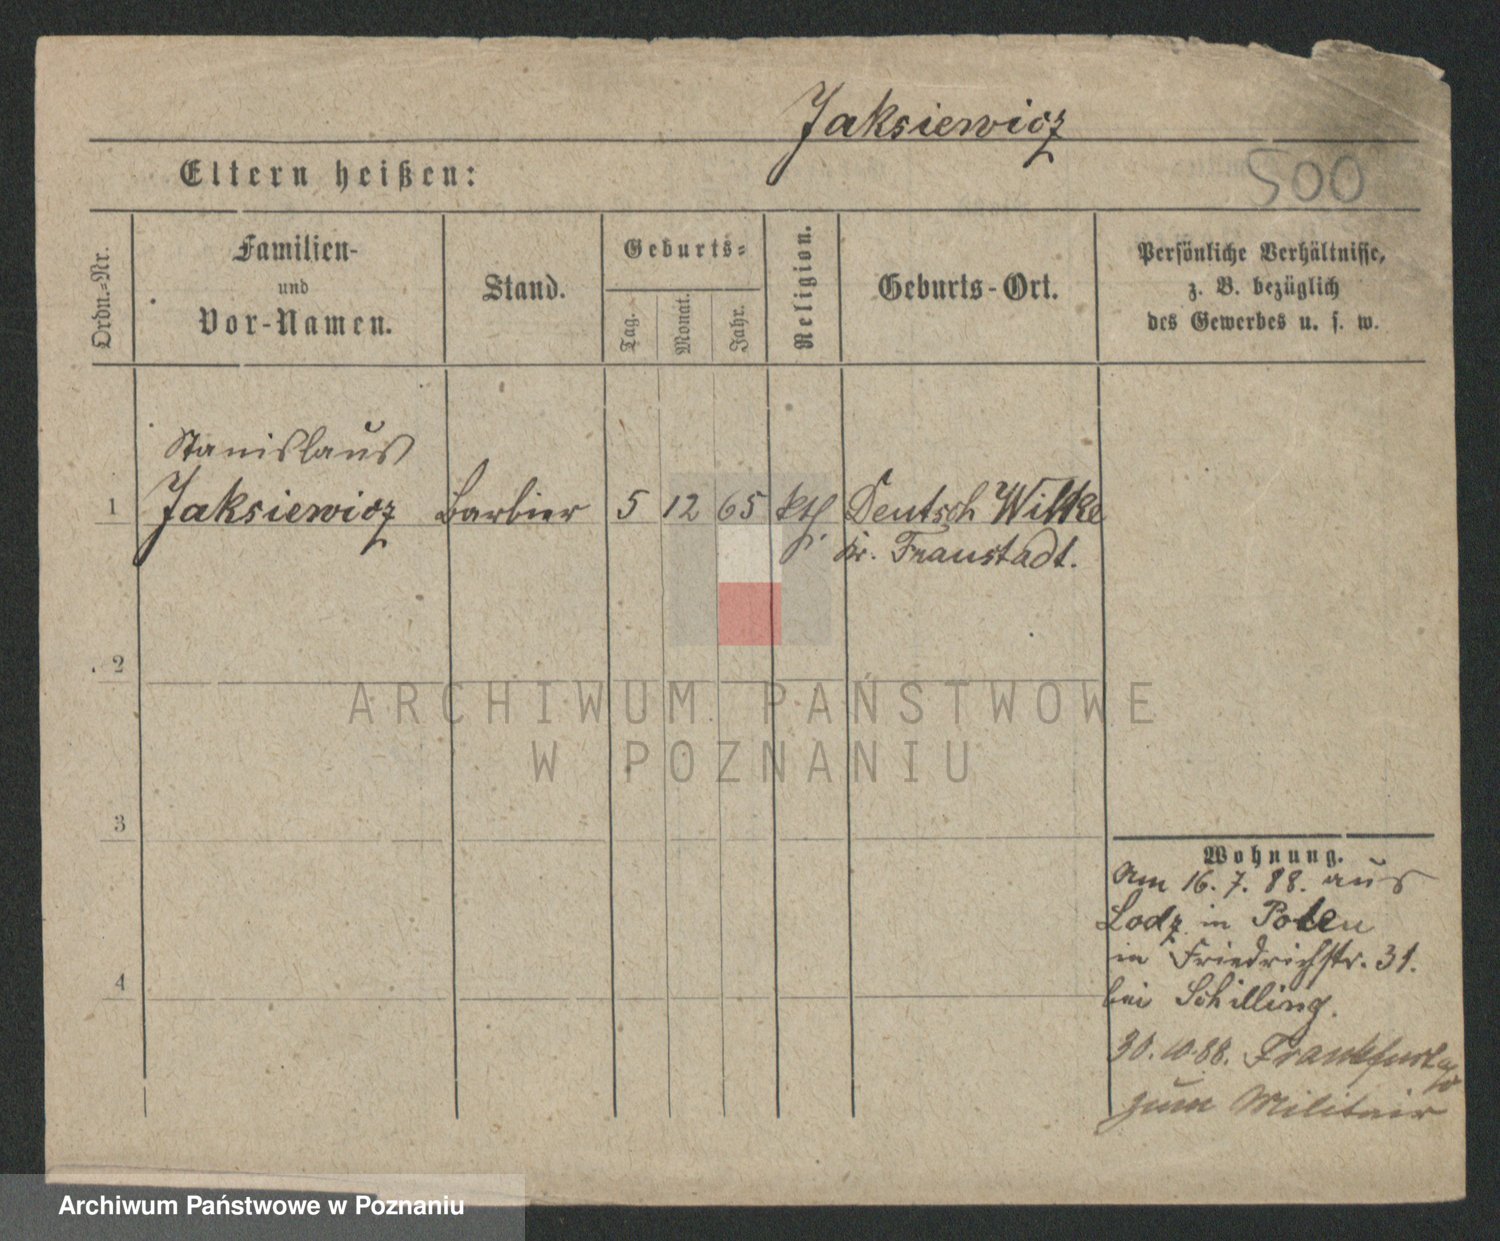 Jaksiewicz
Eltern heißen:
500
Ordn.-Nr.
Familien-
und
Vor-Namen.
Stand.
Geburts-
Tag.
Monat.
Jahr.
Religion.
Geburts-Ort.
Persönliche Verhältnisse,
z. B. bezüglich
des Gewerbes u. s. w.
Stanislaus
1 Jaksiewicz Barbier 5 12 65 kth. Deutsch Wilke
Kr. Fraustadt.
2
ARCHIWUM PAŃSTWOWE
W POZNANIU
3
Wohnung.
Am 16. 7. 88. aus
Lodz in Polen
in Friedrichstr. 31.
bei Schilling.
4
30. 10. 88. Frankfurt a/O
zum Militair
Archiwum Państwowe w Poznaniu